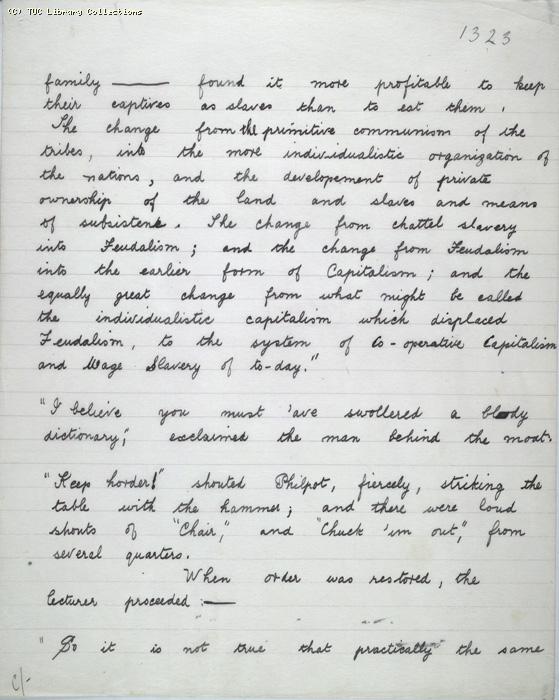 (C) TUC Library Collections
1323
family —— found it more profitable to keep
their captives as slaves than to eat them.
The change from the primitive communism of the
tribes, into the more individualistic organization of
the nations, and the developement of private
ownership of the land and slaves and means
of subsistence. The change from chattel slavery
into Feudalism; and the change from Feudalism
into the earlier form of Capitalism; and the
equally great change from what might be called
the individualistic capitalism which displaced
Feudalism, to the system of Co-operative Capitalism
and Wage Slavery of to-day."
"I believe you must 'ave swollered a bloody
dictionary," exclaimed the man behind the moat.
"Keep horder!" shouted Philpot, fiercely, striking the
table with the hammer; and there were loud
shouts of "Chair," and "Chuck 'im out," from
several quarters.
When order was restored, the
lecturer proceeded :—
"So it is not true that practically the same
c/-